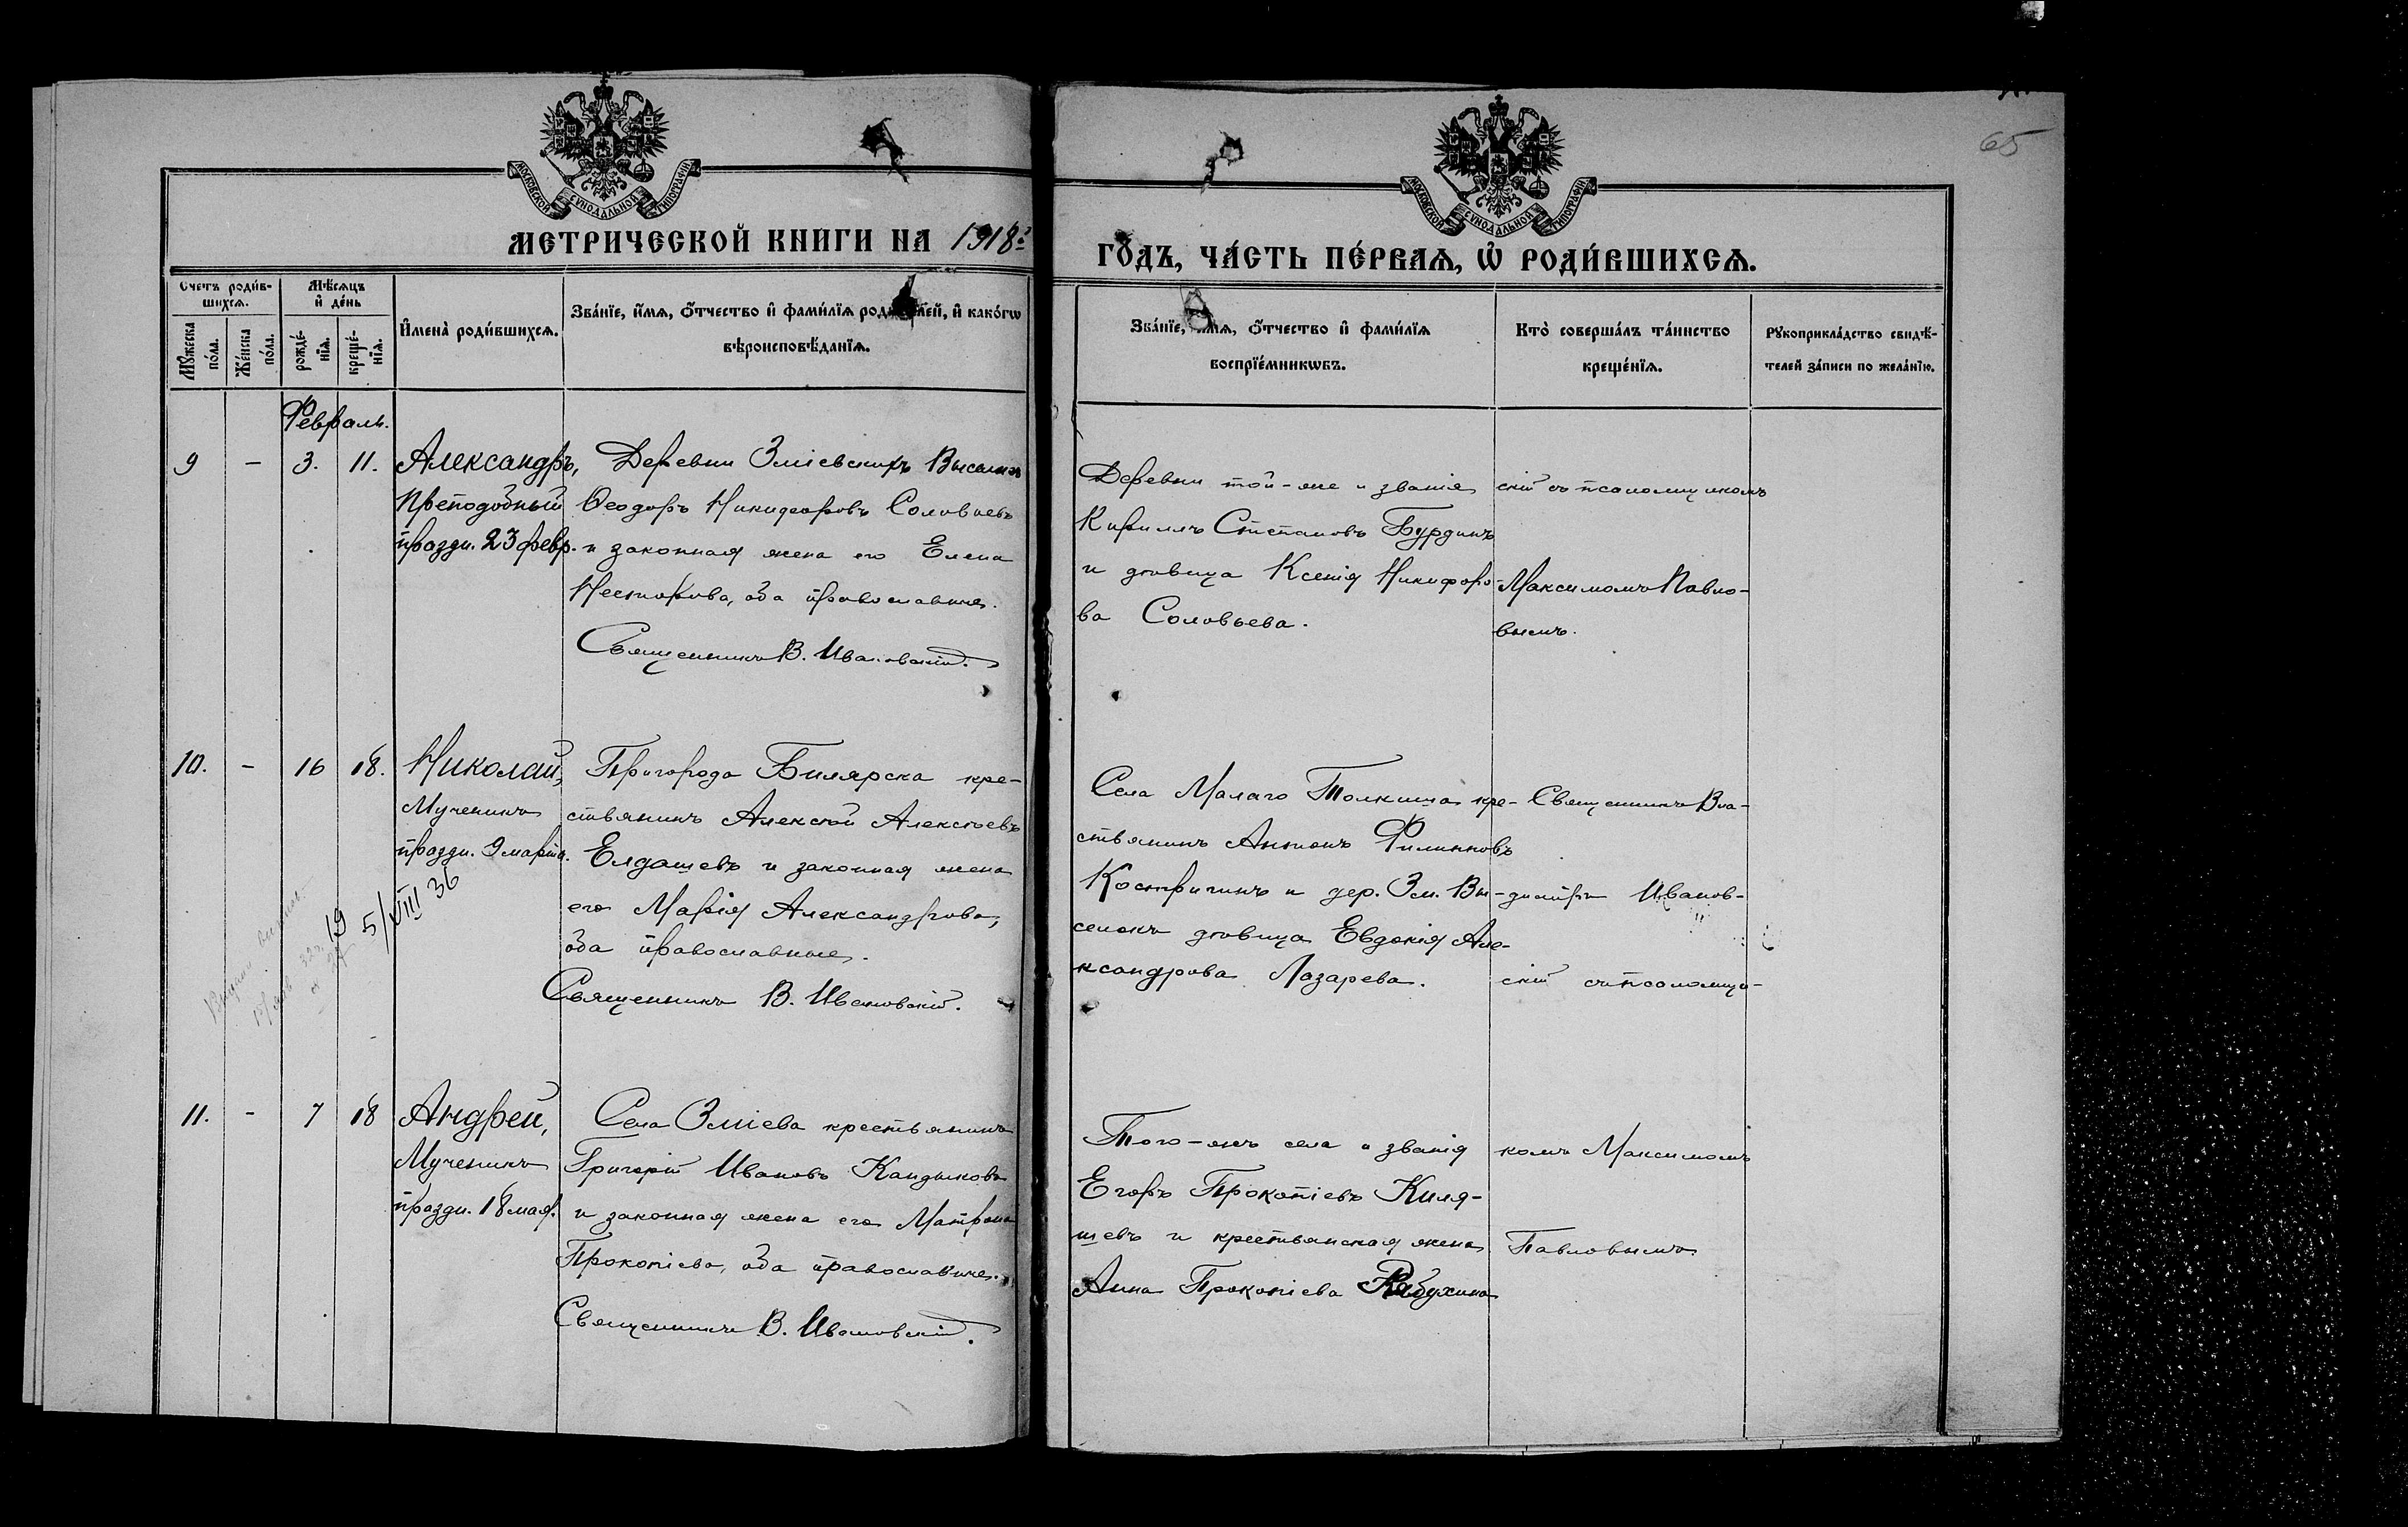 65
МОСКОВСКОЙ СѴНОДАЛЬНОЙ ТИПОГРАФІИ
МОСКОВСКОЙ СѴНОДАЛЬНОЙ ТИПОГРАФІИ
МЕТРИЧЕСКОЙ КНИГИ НА 1918 г
ГО́ДЪ, ЧА́СТЬ ПЕ́РВАѦ, Ѡ҆ РОДИ́ВШИХСѦ.
Счетъ роди́в-
шихсѧ.
Мѣ́сѧцъ
и҆ де́нь
Мꙋжеска
по́ла.
Же́нска
по́ла.
рожде́-
нїѧ.
креще́-
нїѧ.
И҆мена̀ роди́вшихсѧ.
Зва́нїе, и҆́мѧ, ѻ҆́тчество и҆ фами́лїѧ родителей, и҆ како́гѡ
вѣроисповѣ́данїѧ.
Зва́нїе, и҆́мѧ, ѻ҆́тчество и҆ фами́лїѧ
воспрїе́мникѡвъ.
Кто̀ соверша́лъ та́инство
креще́нїѧ.
Рꙋкоприкла́дство свидѣ́-
телей за́писи по жела́нїю.
Февраль.
9 - 3. 11.
Александръ,
Преподобный
праздн. 23 февр.
Деревни Зміевскихъ Выселокъ
Ѳеодоръ Никифоровъ Соловьевъ
и законная жена его Елена
Несторова, оба православные.
Священникъ В. Ивановскій.
Деревни той-же и званія
Кириллъ Степановъ Бурдинъ
и дѣвица Ксенія Никифоро-
ва Соловьева.
скій съ псаломщикомъ
Максимомъ Павло-
вымъ.
10. - 16 18.
Николай,
Мученикъ
праздн. 9 марта.
19 5/VIII 36
Пригорода Билярска кре-
стьянинъ Алексѣй Алексѣевъ
Елдашевъ и законная жена
его Марія Александрова,
оба православные.
Священникъ В. Ивановскій.
Села Малаго Толкиша кре-
стьянинъ Антонъ Филипповъ
Костригинъ и дер. Зм. Вы-
селокъ дѣвица Евдокія Але-
ксандрова Лазарева.
Священникъ Вла-
диміръ Иванов-
скій съ псаломщи-
11. - 7 18
Андрей,
Мученикъ
праздн. 18 мая.
Села Зміева крестьянинъ
Григорій Ивановъ Кандыковъ
и законная жена его Матрона
Прокопіева, оба православные.
Священникъ В. Ивановскій.
Того-же села и званія
Егоръ Прокопіевъ Киля-
шевъ и крестьянская жена
Анна Прокопіева Рябухина
комъ Максимомъ
Павловымъ